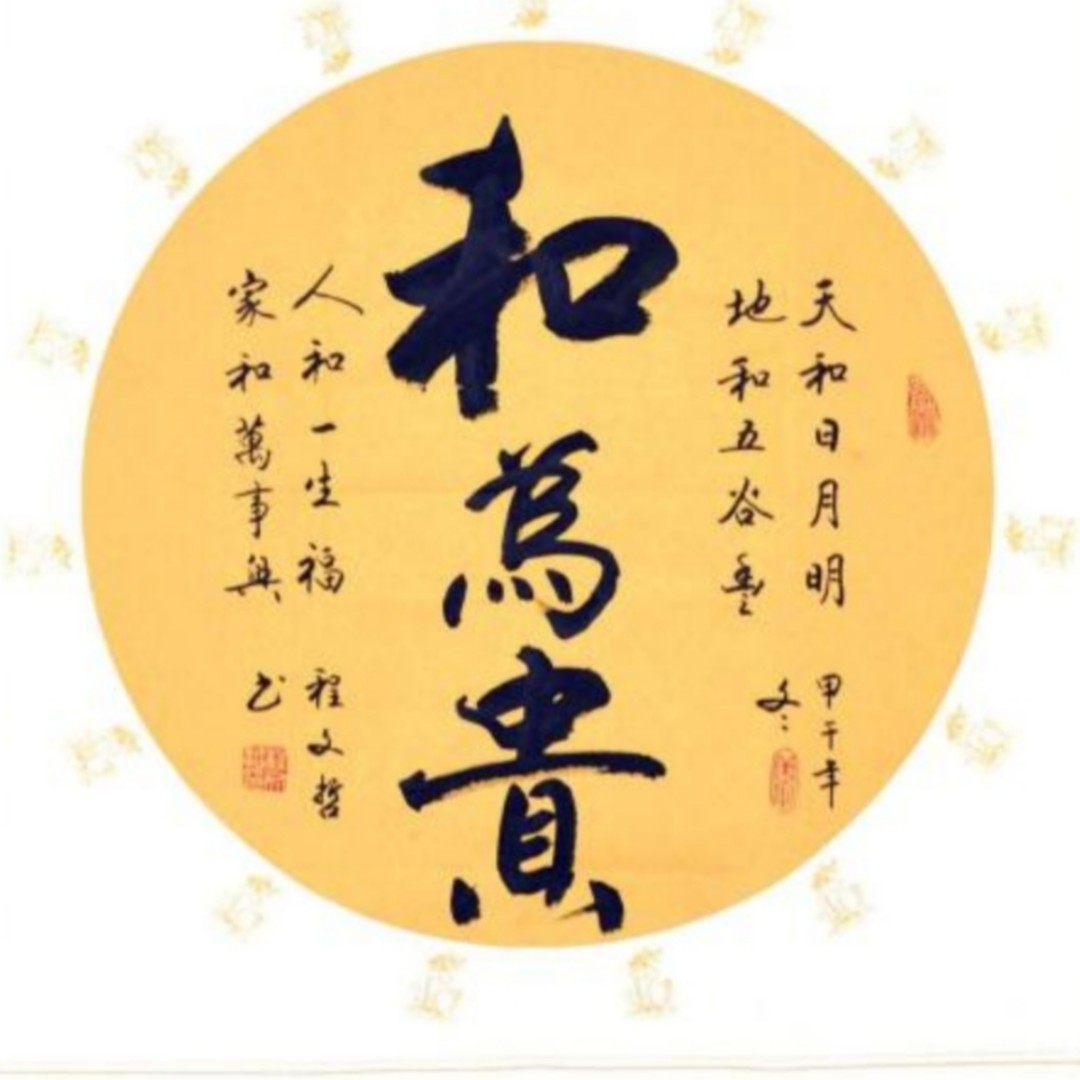 天和日月明
地和五谷豐
甲午年
冬
和為貴
人和一生福
家和萬事興
程文哲
书